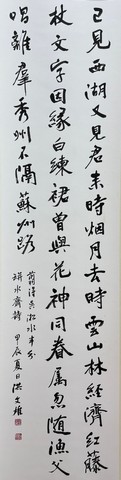 已見西湖又見君来時烟月去時雲山林經濟紅藤
杖文字因緣白練裙曾與花神同眷屬忽隨漁父
唱離羣秀州不隔蘇州路
翦得吳淞水半分
水齋詩 甲辰夏日洪文雄